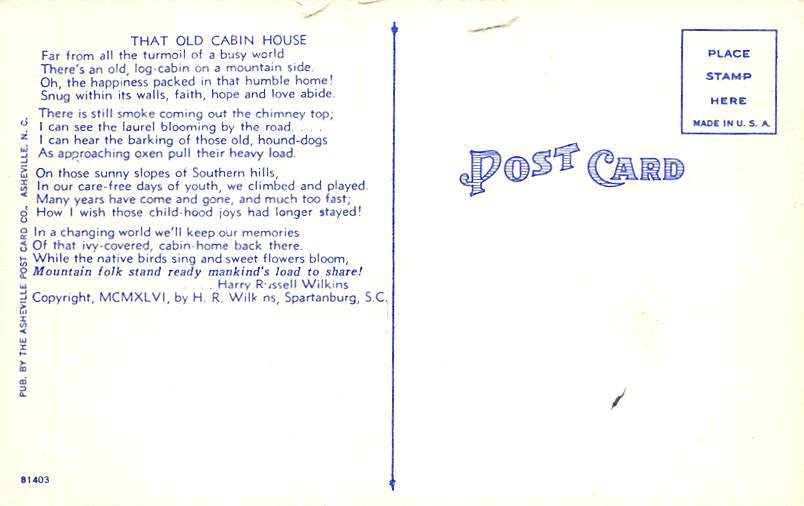 THAT OLD CABIN HOUSE
Far from all the turmoil of a busy world
There's an old, log-cabin on a mountain side.
Oh, the happiness packed in that humble home!
Snug within its walls, faith, hope and love abide.
There is still smoke coming out the chimney top;
I can see the laurel blooming by the road. . . .
I can hear the barking of those old, hound-dogs
As approaching oxen pull their heavy load.
On those sunny slopes of Southern hills,
In our care-free days of youth, we climbed and played.
Many years have come and gone, and much too fast;
How I wish those child-hood joys had longer stayed!
In a changing world we'll keep our memories
Of that ivy-covered, cabin-home back there.
While the native birds sing and sweet flowers bloom,
Mountain folk stand ready mankind's load to share!
. . . . Harry Russell Wilkins
Copyright, MCMXLVI, by H. R. Wilkins, Spartanburg, S.C.
PUB. BY THE ASHEVILLE POST CARD CO., ASHEVILLE, N. C.
81403
POST CARD
PLACE
STAMP
HERE
MADE IN U. S. A.